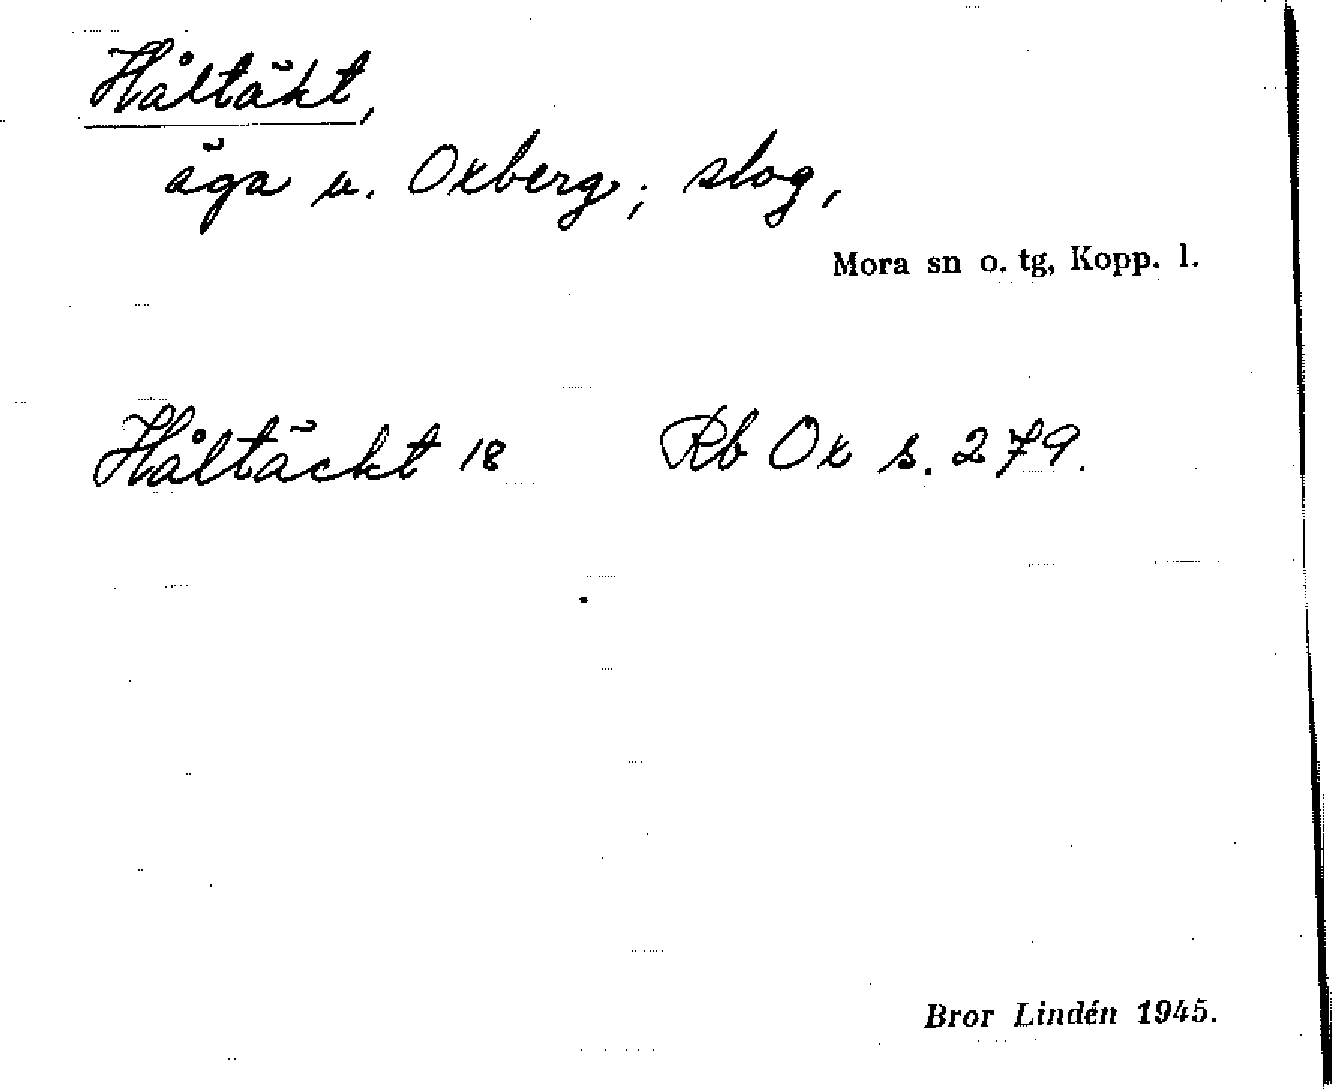 Håltäkt,
äga u. Oxberg; slog,
Mora sn o. tg, Kopp. l.
Håltäckt 18 Rb Ox s. 279.
Bror Lindén 1945.